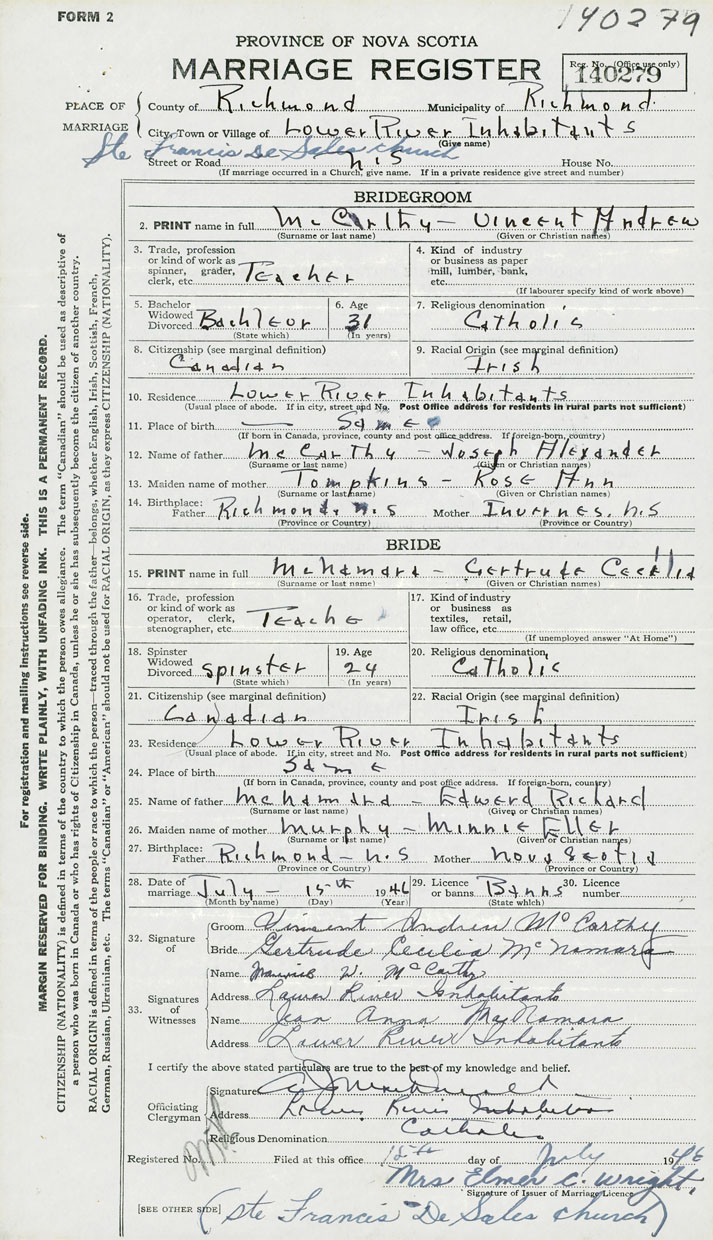 FORM 2
140279
PROVINCE OF NOVA SCOTIA
MARRIAGE REGISTER
Reg. No. (Office use only)
140279
PLACE OF MARRIAGE
County of Richmond Municipality of Richmond.
City, Town or Village of Lower River Inhabitants
(Give name)
Ste Francis De Sales church
Street or Road N.S House No.
(If marriage occurred in a Church, give name. If in a private residence give street and number)
BRIDEGROOM
2. PRINT name in full McCarthy - Vincent Andrew
(Surname or last name) (Given or Christian names)
3. Trade, profession or kind of work as spinner, grader, clerk, etc. Teacher
4. Kind of industry or business as paper mill, lumber, bank, etc.
(If labourer specify kind of work above)
5. Bachelor Widowed Divorced Bachleor
(State which)
6. Age 31
(In years)
7. Religious denomination Catholic
8. Citizenship (see marginal definition) Canadian
9. Racial Origin (see marginal definition) Irish
10. Residence Lower River Inhabitants
(Usual place of abode. If in city, street and No. Post Office address for residents in rural parts not sufficient)
11. Place of birth Same
(If born in Canada, province, county and post office address. If foreign-born, country)
12. Name of father McCarthy - Joseph Alexander
(Surname or last name) (Given or Christian names)
13. Maiden name of mother Tompkins - Rose Ann
(Surname or last name) (Given or Christian names)
14. Birthplace: Father Richmond. N.S Mother Invernes. N.S
(Province or Country) (Province or Country)
BRIDE
15. PRINT name in full McNamara - Gertrude Cecilia
(Surname or last name) (Given or Christian names)
16. Trade, profession or kind of work as operator, clerk, stenographer, etc. Teache
17. Kind of industry or business as textiles, retail, law office, etc.
(If unemployed answer "At Home")
18. Spinster Widowed Divorced Spinster
(State which)
19. Age 24
(In years)
20. Religious denomination Catholic
21. Citizenship (see marginal definition) Canadian
22. Racial Origin (see marginal definition) Irish
23. Residence Lower River Inhabitants
(Usual place of abode. If in city, street and No. Post Office address for residents in rural parts not sufficient)
24. Place of birth Same
(If born in Canada, province, county and post office address. If foreign-born, country)
25. Name of father McNamara - Edward Richard
(Surname or last name) (Given or Christian names)
26. Maiden name of mother Murphy - Minnie Ellen
(Surname or last name) (Given or Christian names)
27. Birthplace: Father Richmond - N.S Mother Nova Scotia
(Province or Country) (Province or Country)
28. Date of marriage July - 15th 1946
(Month by name) (Day) (Year)
29. Licence or banns Banns
(State which)
30. Licence number
32. Signature of
Groom Vincent Andrew McCarthy
Bride Gertrude Cecilia McNamara
33. Signatures of Witnesses
Name Maurice W. McCarthy
Address Lower River Inhabitants
Name Jean Anna MacNamara
Address Lower River Inhabitants
I certify the above stated particulars are true to the best of my knowledge and belief.
Officiating Clergyman
Signature
Address Lower River Inhabitants
Religious Denomination Catholic
Registered No. Filed at this office 15th day of July 1946
Mrs Elmer C. Wright.
Signature of Issuer of Marriage Licence
[SEE OTHER SIDE]
(Ste Francis De Sales church)
For registration and mailing instructions see reverse side.
MARGIN RESERVED FOR BINDING. WRITE PLAINLY, WITH UNFADING INK. THIS IS A PERMANENT RECORD.
CITIZENSHIP (NATIONALITY) is defined in terms of the country to which the person owes allegiance. The term "Canadian" should be used as descriptive of
a person who was born in Canada or who has rights of Citizenship in Canada, unless he or she has subsequently become the citizen of another country.
RACIAL ORIGIN is defined in terms of the people or race to which the person—traced through the father—belongs, whether English, Irish, Scottish, French,
German, Russian, Ukrainian, etc. The terms "Canadian" or "American" should not be used for RACIAL ORIGIN, as they express CITIZENSHIP (NATIONALITY).